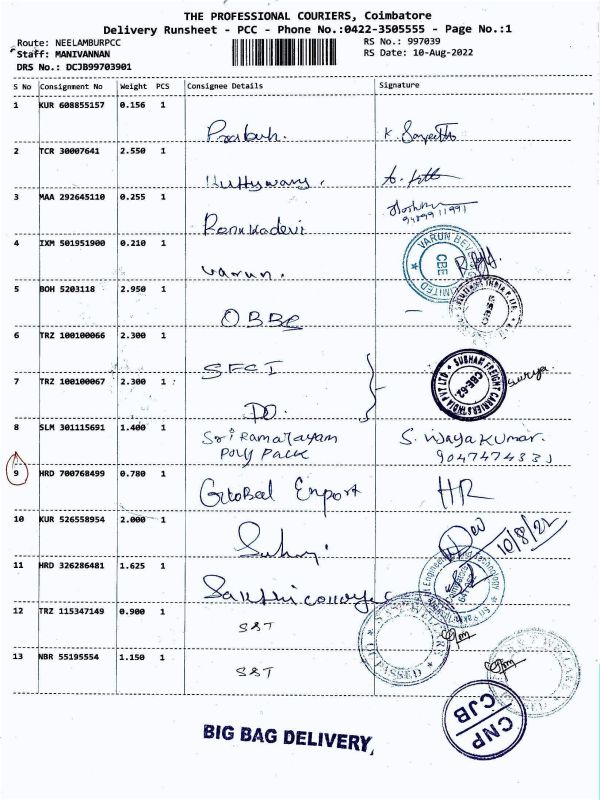 THE PROFESSIONAL COURIERS, Coimbatore
Delivery Runsheet - PCC - Phone No.:0422-3505555 - Page No.:1
Route: NEELAMBURPCC
RS No.: 997039
Staff: MANIVANNAN
RS Date: 10-Aug-2022
DRS No.: DCJB99703901
S No Consignment No Weight PCS Consignee Details Signature
1 KUR 608855157 0.156 1
2 TCR 30007641 2.550 1
3 MAA 292645110 0.255 1
9489911991
Renukadevi
4 IXM 501951900 0.210 1
varun.
VARUN BEV LIMITED CBE
5 BOH 5203118 2.950 1
OBBC
6 TRZ 100100066 2.300 1
SFCI
SUBHAM FREIGHT CARRIERS INDIA PVT LTD CBE-62
Surya
7 TRZ 100100067 2.300 1
DO.
8 SLM 301115691 1.400 1
Sri Ramarayam
Poly Pack
S. Vijayakumar.
9 HRD 700768499 0.780 1
Global Export
HR
10 KUR 526558954 2.000 1
Dev
10/8/22
11 HRD 326286481 1.625 1
12 TRZ 115347149 0.900 1
S&T
13 NBR 55195554 1.150 1
S&T
CNP
CJB
BIG BAG DELIVERY